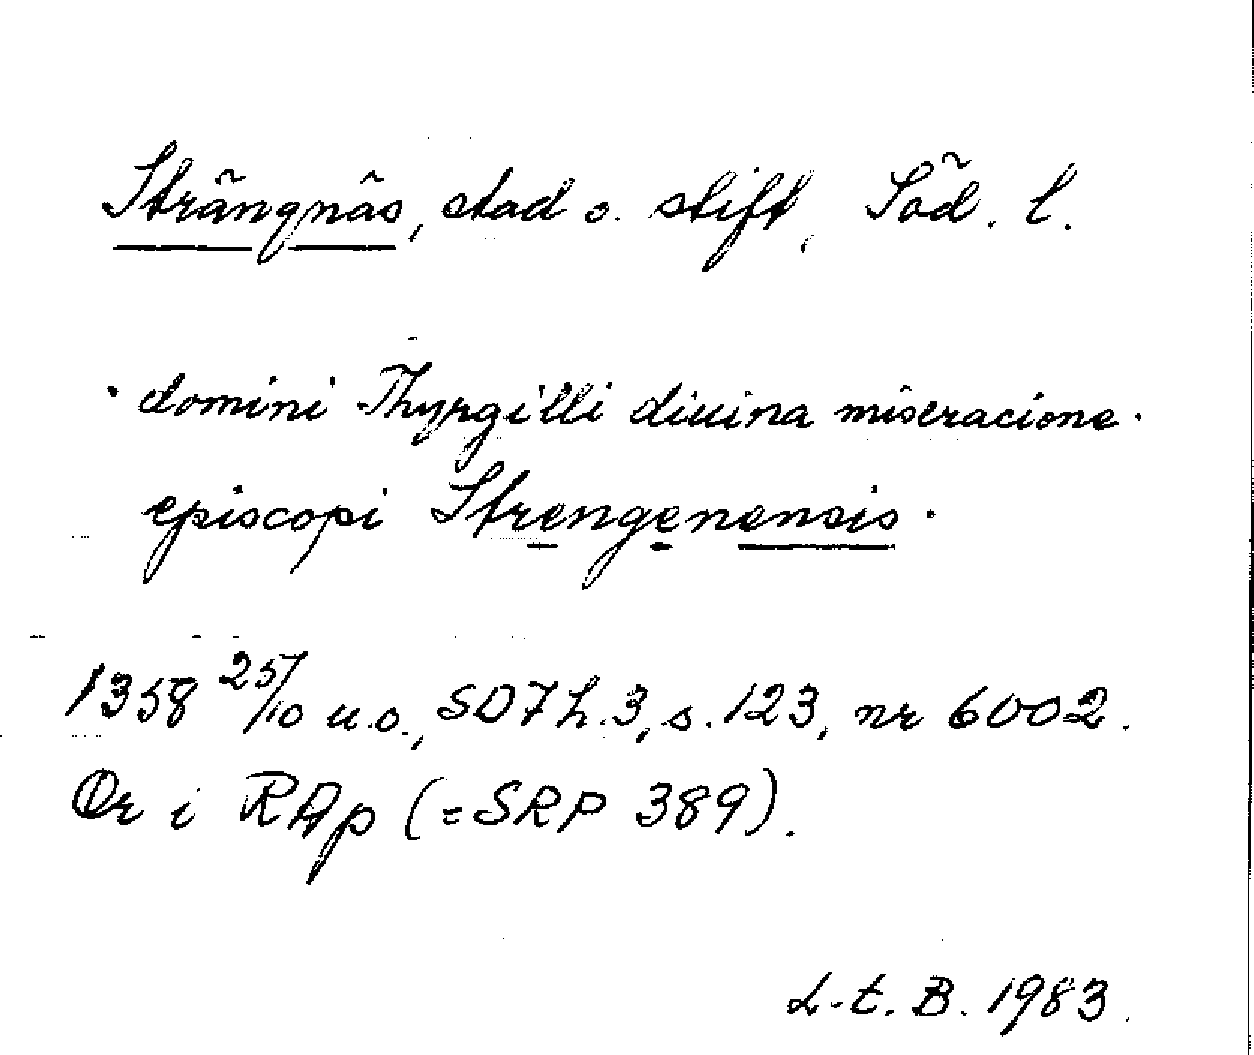 Strängnäs, stad o. stift, Söd. l.
· domini Thyrgilli diuina miseracione ·
episcopi Strengenensis ·
1358 25/10 u.o., SD7 h.3, s.123, nr 6002.
Or i RAp (=SRP 389).
L-E. B. 1983.